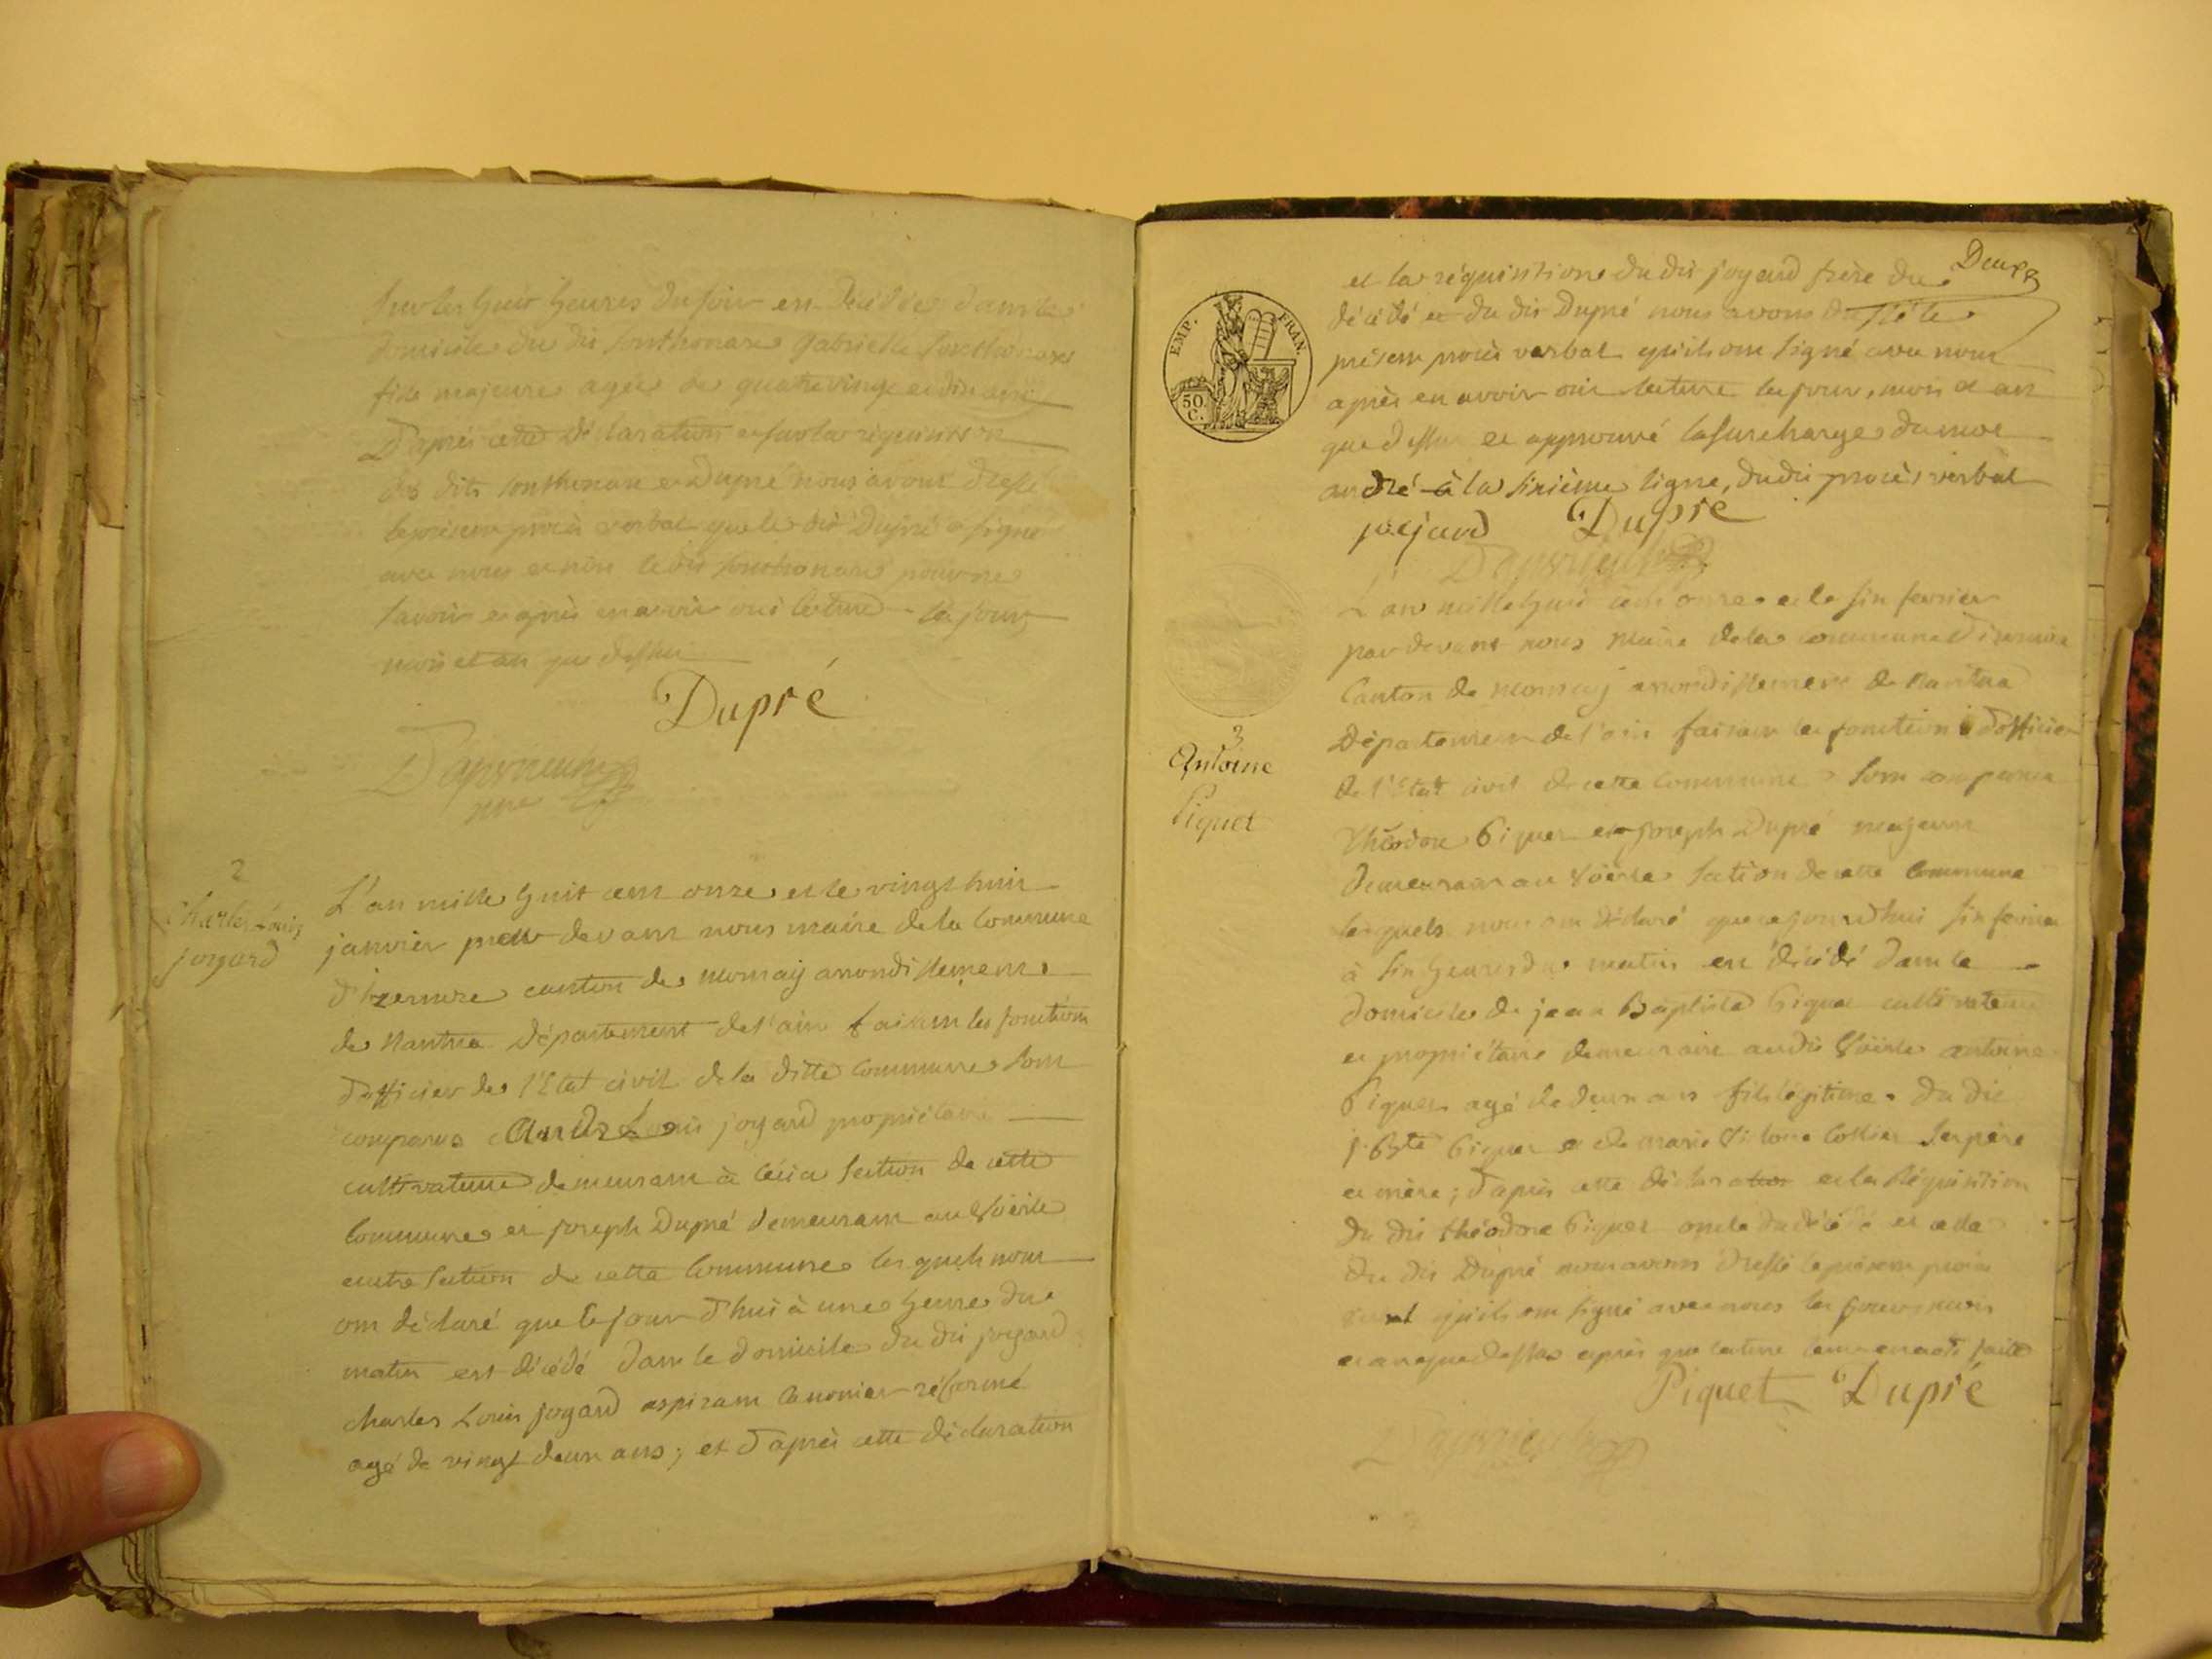 sur les huit heures du soir est décédée dans le
domicile du dit Sonthonax gabrielle Sonthonax
fille majeure agée de quatre vingt et dix ans
D'après cette déclaration et sur la réquisition
des dits Sonthonax et Dupré nous avons dressé
le présent procès verbal que le dit Dupré a signé
avec nous et non le dit Sonthonax pour ne
savoir et après en avoir oui lecture les jour
mois et an que dessus
Dupré
2
Charles Louis
joyard
L'an mille huit cent onze et le vingt huit
janvier par devant nous maire de la Commune
d'izernore canton de mornay arrondissement
de Nantua Département de l'ain faisant les fonctions
d'officier de l'Etat civil de la ditte Commune sont
comparus André Louis joyard propriétaire
cultivateur demeurant à Section de cette
Commune et joseph Dupré demeurant au Voërle
autre Section de cette Commune lesquels nous
ont déclaré que le jour d'hui à une heure du
matin est décédé dans le domicile du dit joyard
charles Louis joyard aspirant canonier réformé
agé de vingt deux ans; et d'après cette déclaration
Deux
et la réquisition du dit joyard frère du
décédé et du dit Dupré nous avons dressé le
présent procès verbal qu'ils ont signé avec nous
après en avoir oui lecture les jour, mois et an
que dessus et approuvé la surcharge du mot
andré à la sixième ligne, du dit procès verbal
joyard Dupré
EMP. FRAN.
50 C.
3
Antoine
Piquet
L'an mille huit cent onze et le six fevrier
par devant nous Maire de la Commune d'izernore
Canton de mornay arrondissement de Nantua
Département de l'ain faisant les fonctions d'officier
de l'Etat civil de cette Commune sont comparus
Théodore Piquet et joseph Dupré majeurs
demeurant au Voërle Section de cette Commune
lesquels nous ont déclaré que ce jourd'hui six fevrier
à six heures du matin est décédé dans le
domicile de jean Baptiste Piquet cultivateur
et propriétaire demeurant audit Voërle antoine
Piquet agé de deux ans fils légitime du dit
j. Bte Piquet et de marie Collier ses père
et mère; d'après cette déclaration et la Réquisition
du dit théodore Piquet oncle du décédé et celle
du dit Dupré nous avons dressé le présent procès
verbal qu'ils ont signé avec nous les jour mois
et an que dessus après que lecture leur en a été faite
Piquet Dupré